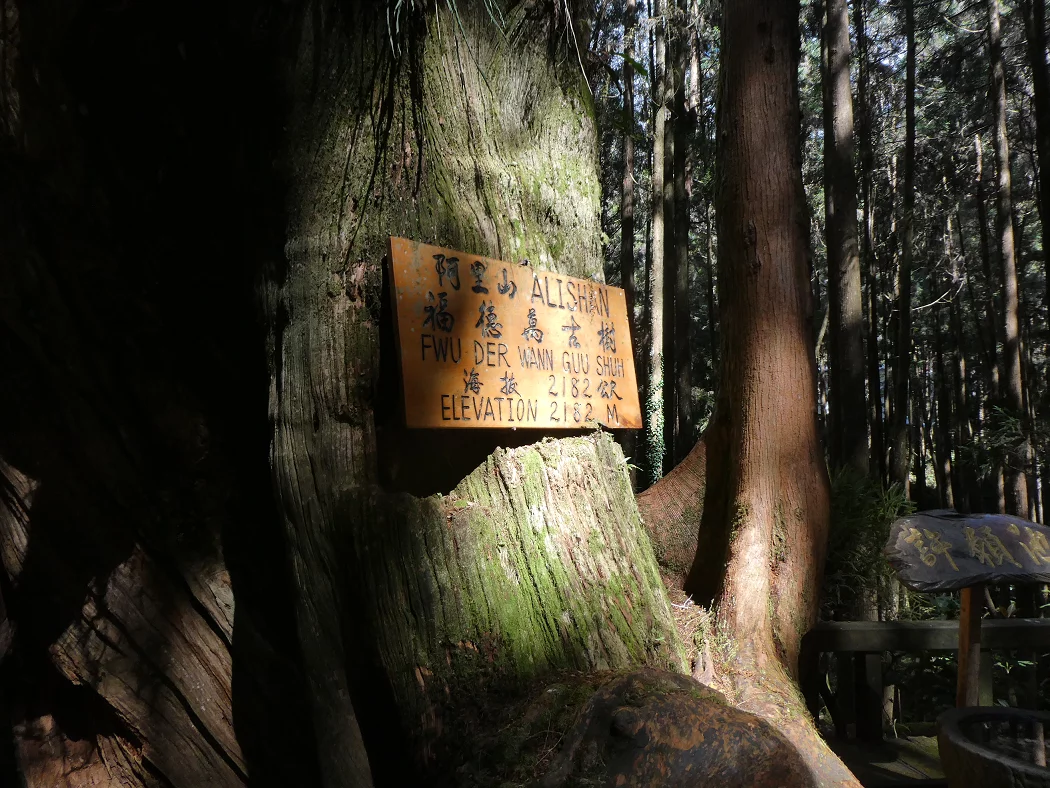 阿里山 ALISHAN
福德萬古樹
FWU DER WANN GUU SHUH
海拔 2182 公尺
ELEVATION 2182 M
許願池